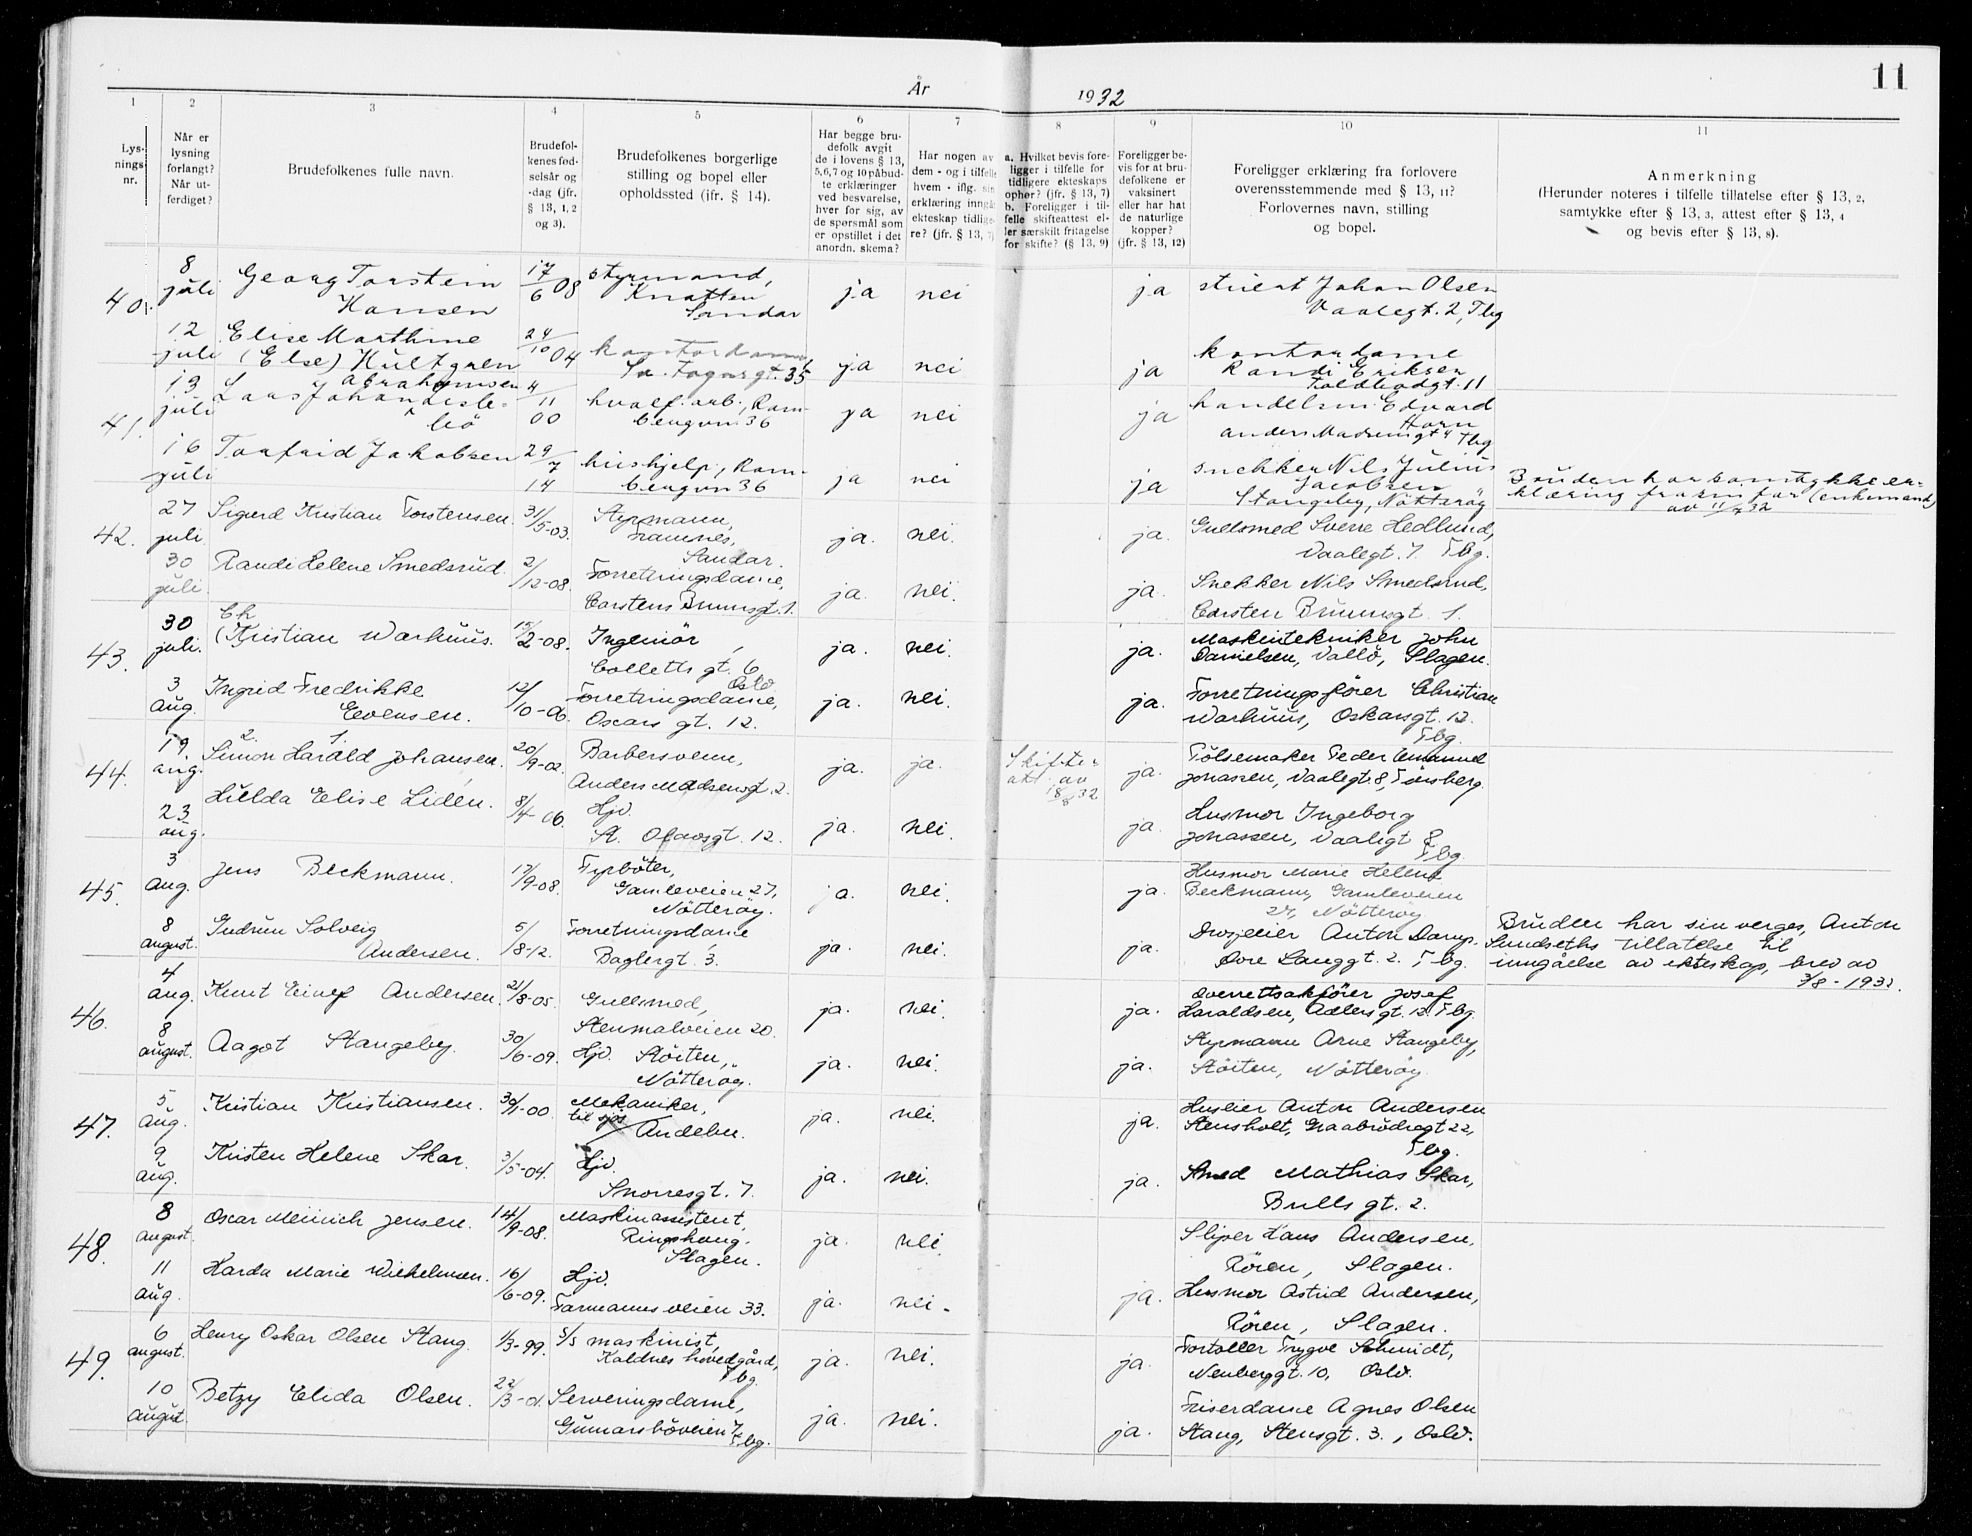 År 1932
11
1 2 3 4 5 6 7 8 9 10 11
Lys-
nings-
nr.
Når er
lysning
forlangt?
Når ut-
ferdiget?
Brudefolkenes fulle navn.
Brudefol-
kenes fød-
selsår og
-dag (jfr.
§ 13, 1, 2
og 3).
Brudefolkenes borgerlige
stilling og bopel eller
opholdssted (ifr. § 14).
Har begge bru-
defolk avgit
de i lovens § 13,
5,6,7 og 10 påbud-
te erklæringer
ved besvarelse,
hver for sig, av
de spørsmål som
er opstillet i det
anordn. skema?
Har nogen av
dem - og i tilfelle
hvem - iflg. sin
erklæring inngå
ekteskap tidlige-
re? (jfr. § 13, 7)
a. Hvilket bevis fore-
ligger i tilfelle for
tidligere ekteskaps
ophør? (jfr. § 13, 7)
b. Foreligger i til-
felle skifteattest el-
ler særskilt fritagelse
for skifte? (§ 13, 9)
Foreligger be-
vis for at bru-
defolkene er
vaksinert
eller har hat
de naturlige
kopper?
(jfr. § 13, 12)
Foreligger erklæring fra forlovere
overensstemmende med § 13, 11?
Forlovernes navn, stilling
og bopel.
Anmerkning
(Herunder noteres i tilfelle tillatelse efter § 13, 2,
samtykke efter § 13, 3, attest efter § 13, 4
og bevis efter § 13, 8).
40.
8
juli
Georg Torstein
Hansen
17/6 08
styrmand,
Knatten
Sandar
ja nei ja
Johan Olsen
Vaalegt. 2, Tbg
12
juli
Elise Marthine
(Else) Hultgren
24/10 04
kontordame
35
ja nei ja
kontordame
Randi Eriksen
Toldbodgt. 11
41.
13
juli
Abrahamsen
Lars Johan
bö
4/11
00
hvalf. arb., Ram-
bergvn 36
ja nei ja
handelsm. Edvard
Horn
Anders Madsensgt 4 Tbg
16
juli
Torfrid Jakobsen
29/7
14
hushjelp, Ram-
bergvn 36
ja nei ja
snekker Nils Julius
Jacobsen
Stangeby, Nötteröy
Bruden har samtykkeer-
klæring fra sin far (enkemand)
av 11/7 32
42.
27
juli.
Sigurd Kristian Torstensen.
31/5-03.
Styrmann,
Framnes,
Sandar.
ja. nei. ja.
Gullsmed Sverre Hedlund,
Vaalegt. 7. Tbg.
30
juli.
Randi Helene Smedsrud.
2/12-08.
Forretningsdame,
Carstens Bruunsgt. 1.
ja. nei. ja.
Snekker Nils Smedsrud,
Carsten Bruunsgt. 1.
43.
30
juli.
Ch
(Kristian Warhuus.
15/2-08.
Ingeniör,
Colletts gt. 6
Oslo
ja. nei. ja.
Maskintekniker John
Danielsen, Vallö, Slagen.
3
aug.
Ingrid Fredrikke
Evensen.
12/10-06.
Forretningsdame,
Oscars gt. 12.
ja. nei. ja.
Forretningsförer Christian
Warhuus, Oskarsgt. 12.
Tbg.
44.
19
aug.
2. 1.
Simon Harald Johansen.
20/9-02.
Barbersvenn,
Anders Madsensgt. 2.
ja. ja.
Skifte-
att. av
18/8 32
ja.
Pölsemaker Peder Emanuel
Jonassen, Vaalegt. 8, Tönsberg.
23
aug.
Hilda Elise Lidén.
8/4-06.
Hjv.
St. Olavsgt. 12.
ja. nei. ja.
Husmor Ingeborg
Jonassen, Vaalegt 8
Tbg.
45.
3
aug.
Jens Beckmann.
17/9-08.
Fyrböter,
Gamleveien 27,
Nötteröy.
ja. nei. ja.
Husmor Marie Helene
Beckmann, Gamleveien
27, Nötteröy
8
august.
Gudrun Solveig
Andersen.
5/8-12.
Forretningsdame
Baglergt. 3.
ja. nei. ja.
Drosjeeier Anton
Övre Langgt. 2. Tbg.
Bruden har sin verges, Anton
Sundseths tillatelse til
inngåelse av ekteskap, brev av
3/8-1932.
46.
4
aug.
Knut Einef Andersen.
21/8-05.
Gullsmed,
Stenmalveien 20.
ja. nei. ja.
Overrettssakförer Josef
Haraldsen, Adlersgt. 12. Tbg.
8
august.
Aagot Stangeby.
30/6-09.
Hjv. Stöiten,
Nötteröy.
ja. nei. ja.
Styrmann Arne Stangeby,
Stöiten, Nötteröy.
47.
5
Aug.
Kristian Kristiansen.
30/1-00.
Mekaniker,
til sjös
Andebu.
ja. nei. ja.
Huseier Anton Andersen
Stensholt, Graabrödregt 22,
Tbg.
9
aug.
Kristen Helene Skar.
3/5-04.
Hjv.
Snorresgt. 7.
ja. nei. ja.
Smed Mathias Skar,
Bulls gt. 2.
48.
8
august.
Oscar Meinich Jensen.
14/9-08.
Maskinassistent,
Ringshaug,
Slagen.
ja. nei.
Sliper Hans Andersen,
Rören, Slagen.
11
aug.
Harda Marie Wilhelmsen.
16/6-09.
Hjv.
Farmannsveien 33.
ja. nei. ja.
Husmor Astrid Andersen,
Rören, Slagen.
49.
6
august.
Henry Oskar Olsen Stang.
1/3-99.
S/S maskinist,
Kaldnes hovedgård,
Tbg.
ja. nei. ja.
Fortoller Trygve Schmidt,
Neuberggt. 10, Oslo.
10
august.
Betzy Elida Olsen.
22/3-01.
Serveringsdame,
Gunnarsböveien 7
Tbg.
ja. nei. ja.
Friserdame Agnes Olsen
Stang, Stensgt. 3., Oslo.